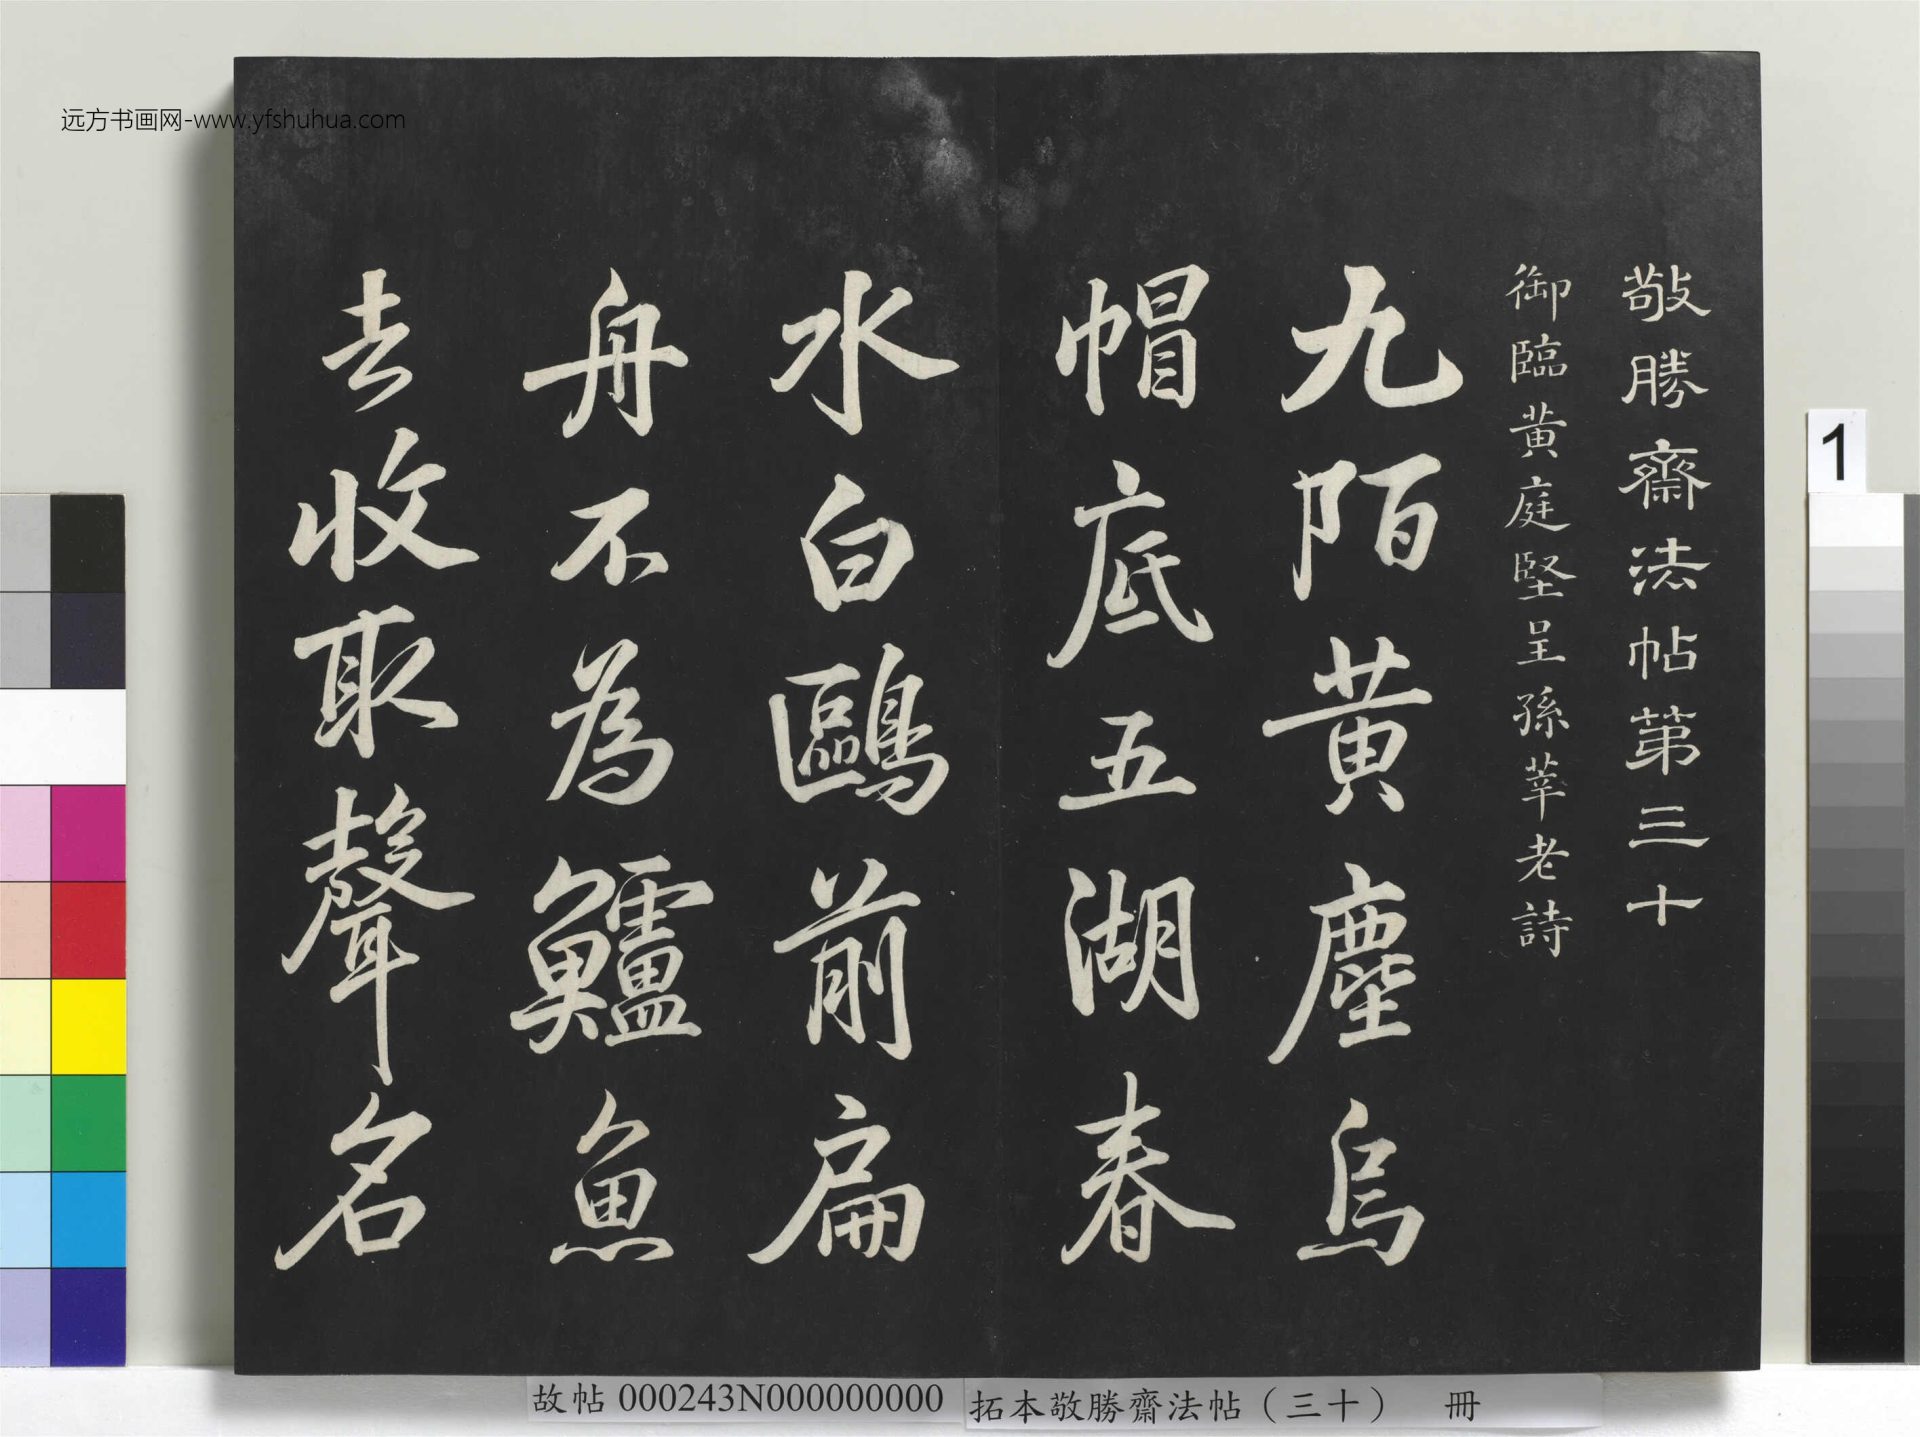 远方书画网-www.yfshuhua.com
敬勝齋法帖第三十
御臨黄庭堅呈孫莘老詩
九陌黄塵烏
帽底五湖春
水白鷗前扁
舟不為鱸魚
去收取聲名
1
故帖 000243N000000000
拓本敬勝齋法帖（三十） 冊